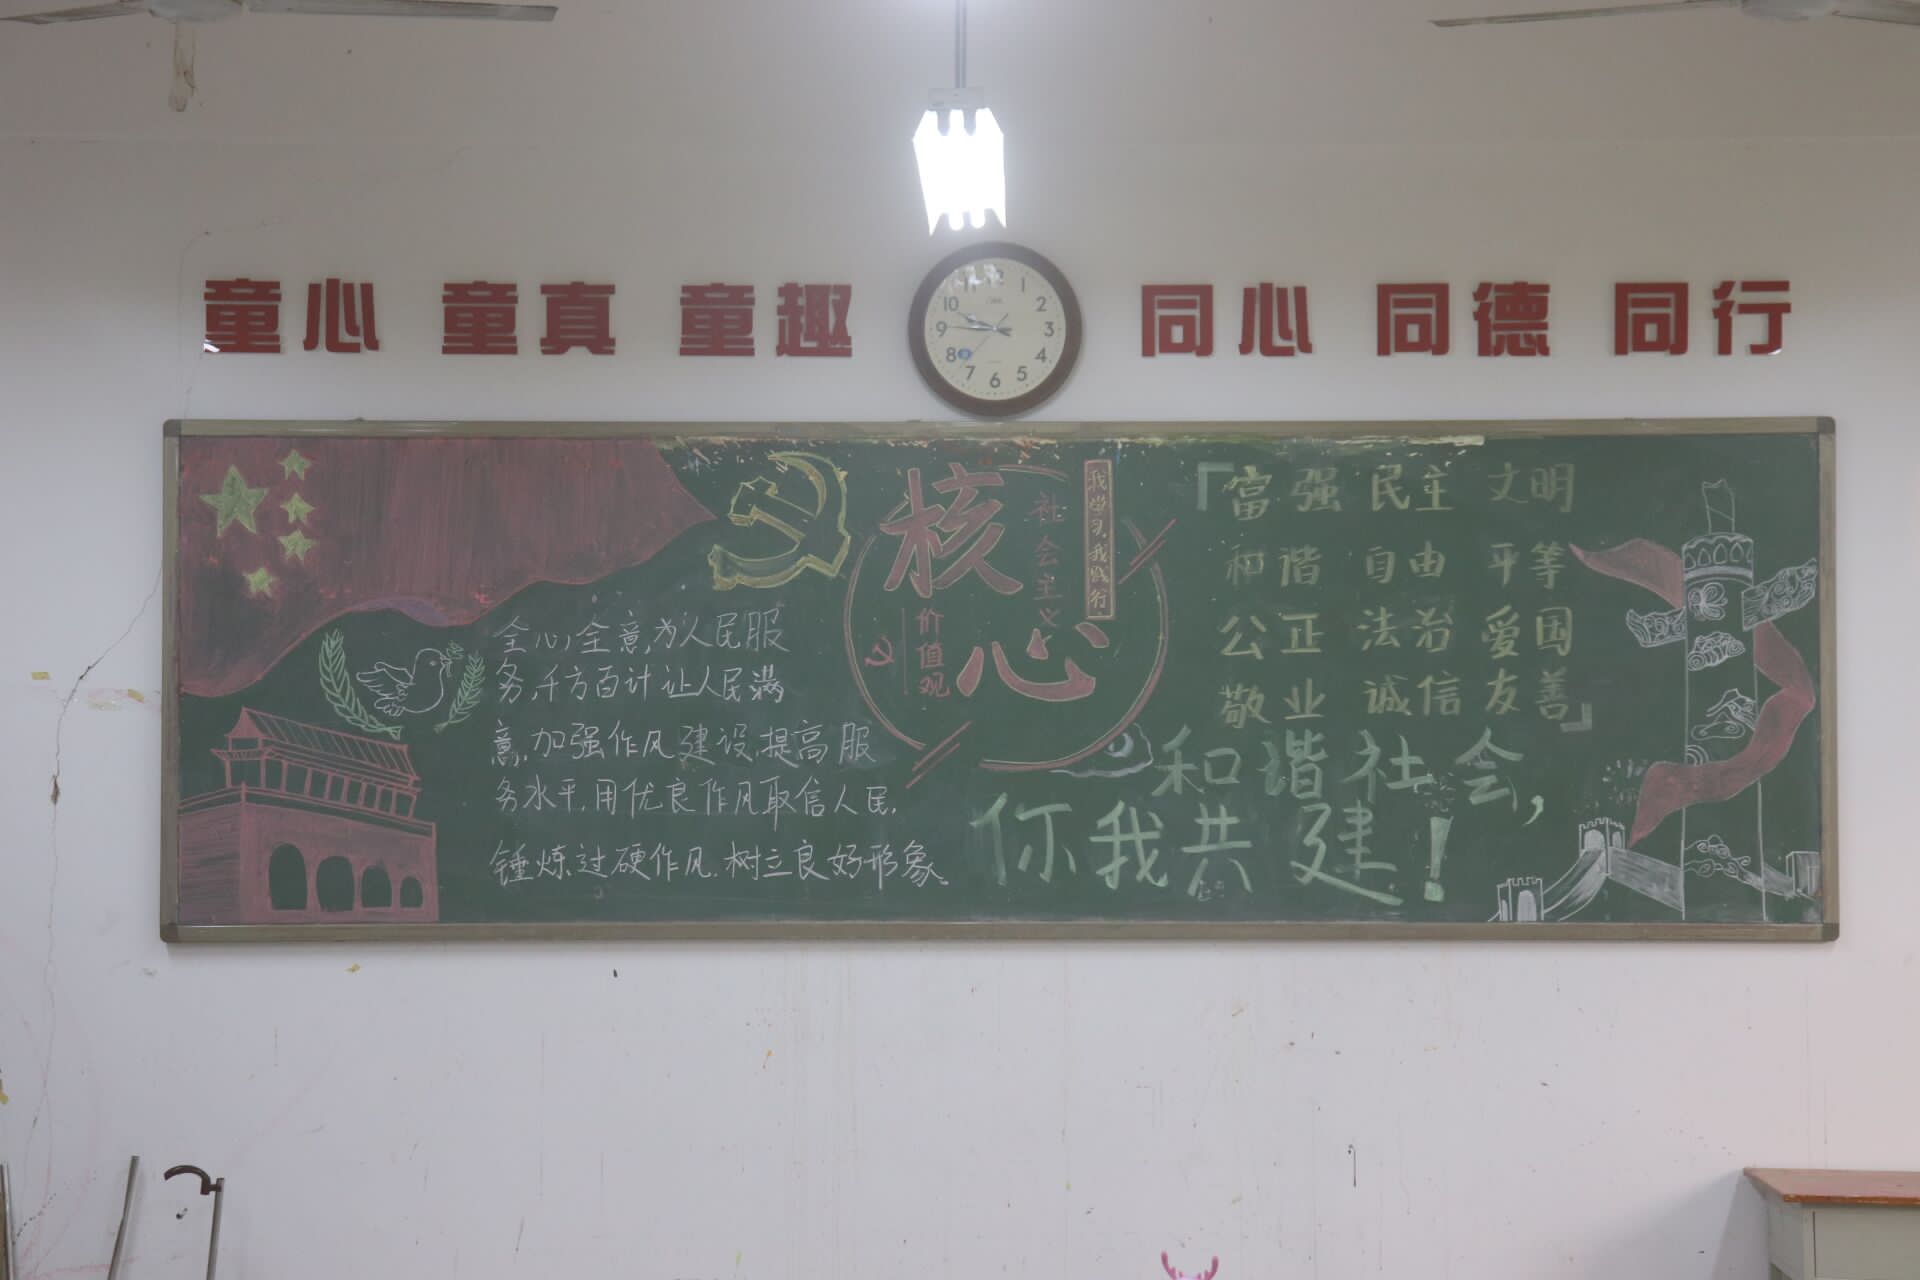 童心 童真 童趣
同心 同德 同行
10 9 8 7 6 5 4 3 2 1
全心,全意,为人民服
务,千方百计让人民满
意,加强作风建设,提高服
务水平,用优良作风取信人民,
锤炼过硬作风,树立良好形象。
核心
社会主义
价值观
我学习,我践行
『富强 民主 文明
和谐 自由 平等
公正 法治 爱国
敬业 诚信 友善』
和谐社会,
你我共建!